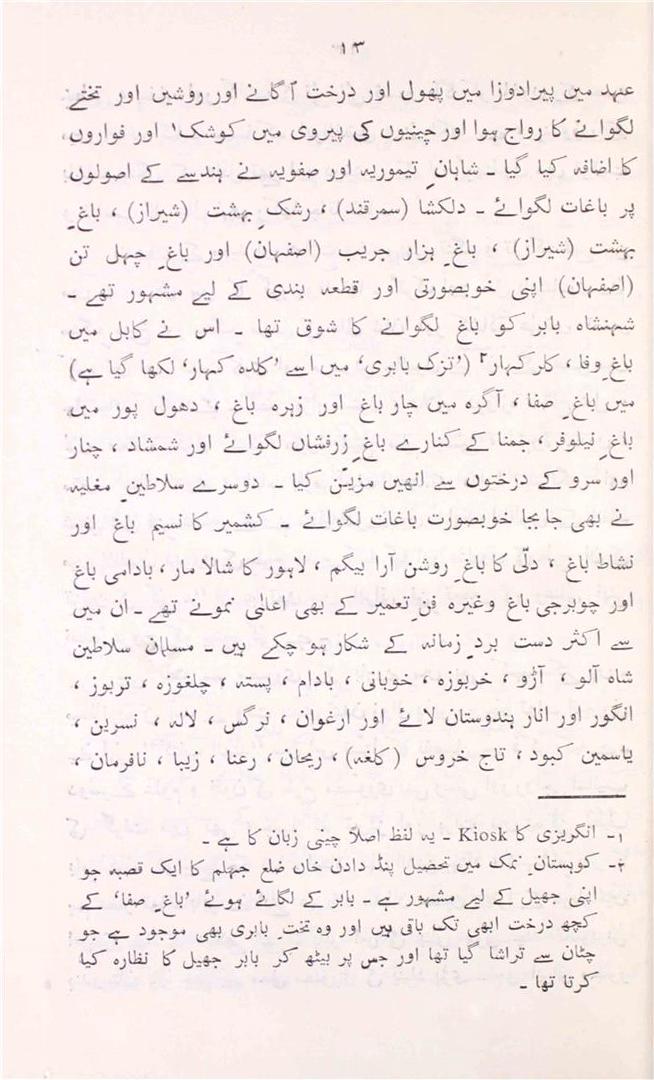 ۱۳
عہد میں پیرادوزا میں پھول اور درخت اگانے اور روشیں اور تختے
لگوانے کا رواج ہوا اور چینیوں کی پیروی میں کوشک۱ اور فواروں
کا اضافہ کیا گیا ۔ شاہانِ تیموریہ اور صفویہ نے ہندسے کے اصولوں
پر باغات لگوائے ۔ دلکشا (سمرقند) ، رشکِ بہشت (شیراز) ، باغِ
بہشت (شیراز) ، باغِ ہزار جریب (اصفہان) اور باغِ چہل تن
(اصفہان) اپنی خوبصورتی اور قطعہ بندی کے لیے مشہور تھے ۔
شہنشاہ بابر کو باغ لگوانے کا شوق تھا ۔ اس نے کابل میں
باغِ وفا ، کلرکہار۲ (’تزک بابری‘ میں اسے ’کلدہ کہار‘ لکھا گیا ہے)
میں باغِ صفا ، آگرہ میں چار باغ اور زہرہ باغ ، دھول پور میں
باغِ نیلوفر، جمنا کے کنارے باغِ زرفشاں لگوائے اور شمشاد ، چنار
اور سرو کے درختوں سے انھیں مزیّن کیا ۔ دوسرے سلاطینِ مغلیہ
نے بھی جا بجا خوبصورت باغات لگوائے ۔ کشمیر کا نسیم باغ اور
نشاط باغ ، دلّی کا باغِ روشن آرا بیگم ، لاہور کا شالا مار، بادامی باغ
اور چوبرجی باغ وغیرہ فنِ تعمیر کے بھی اعلیٰ نمونے تھے ۔ ان میں
سے اکثر دست بردِ زمانہ کے شکار ہو چکے ہیں ۔ مسلمان سلاطین
شاہ آلو ، آڑو ، خربوزہ ، خوبانی ، بادام ، پستہ ، چلغوزہ ، تربوز ،
انگور اور انار ہندوستان لائے اور ارغوان ، نرگس ، لالہ ، نسرین ،
یاسمین کبود ، تاج خروس (کلغہ) ، ریحان ، رعنا ، زیبا ، نافرمان ،
۱۔ انگریزی کا Kiosk ۔ یہ لفظ اصلاً چینی زبان کا ہے ۔
۲۔ کوہستانِ نمک میں تحصیل پنڈ دادن خاں ضلع جہلم کا ایک قصبہ جو
اپنی جھیل کے لیے مشہور ہے ۔ بابر کے لگائے ہوئے ’باغِ صفا‘ کے
کچھ درخت ابھی تک باقی ہیں اور وہ تختِ بابری بھی موجود ہے جو
چٹان سے تراشا گیا تھا اور جس پر بیٹھ کر بابر جھیل کا نظارہ کیا
کرتا تھا ۔